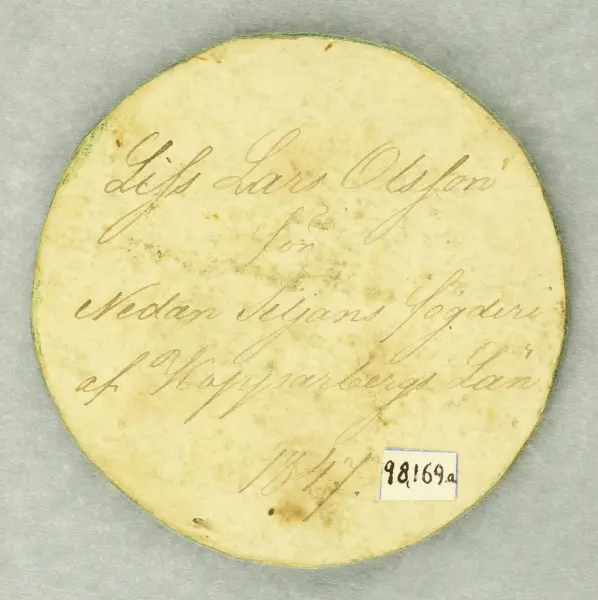 Liss Lars Olsson
för
Nedan Siljans fögderi
af Kopparbergs Län
1847.
98,169.a